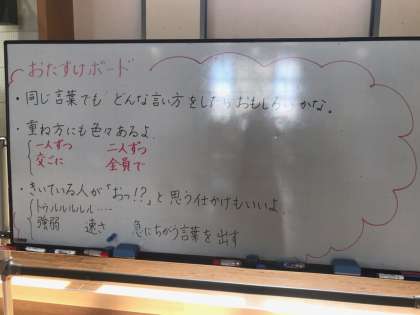 おたすけボード
・同じ言葉でも どんな言い方をしたらおもしろいかな。
・重ね方にも色々あるよ。
一人ずつ 二人ずつ
交ごに 全員で
・きいている人が「おっ!?」と思う仕かけもいいよ。
トゥルルルルル……
強弱 速さ 急にちがう言葉を出す